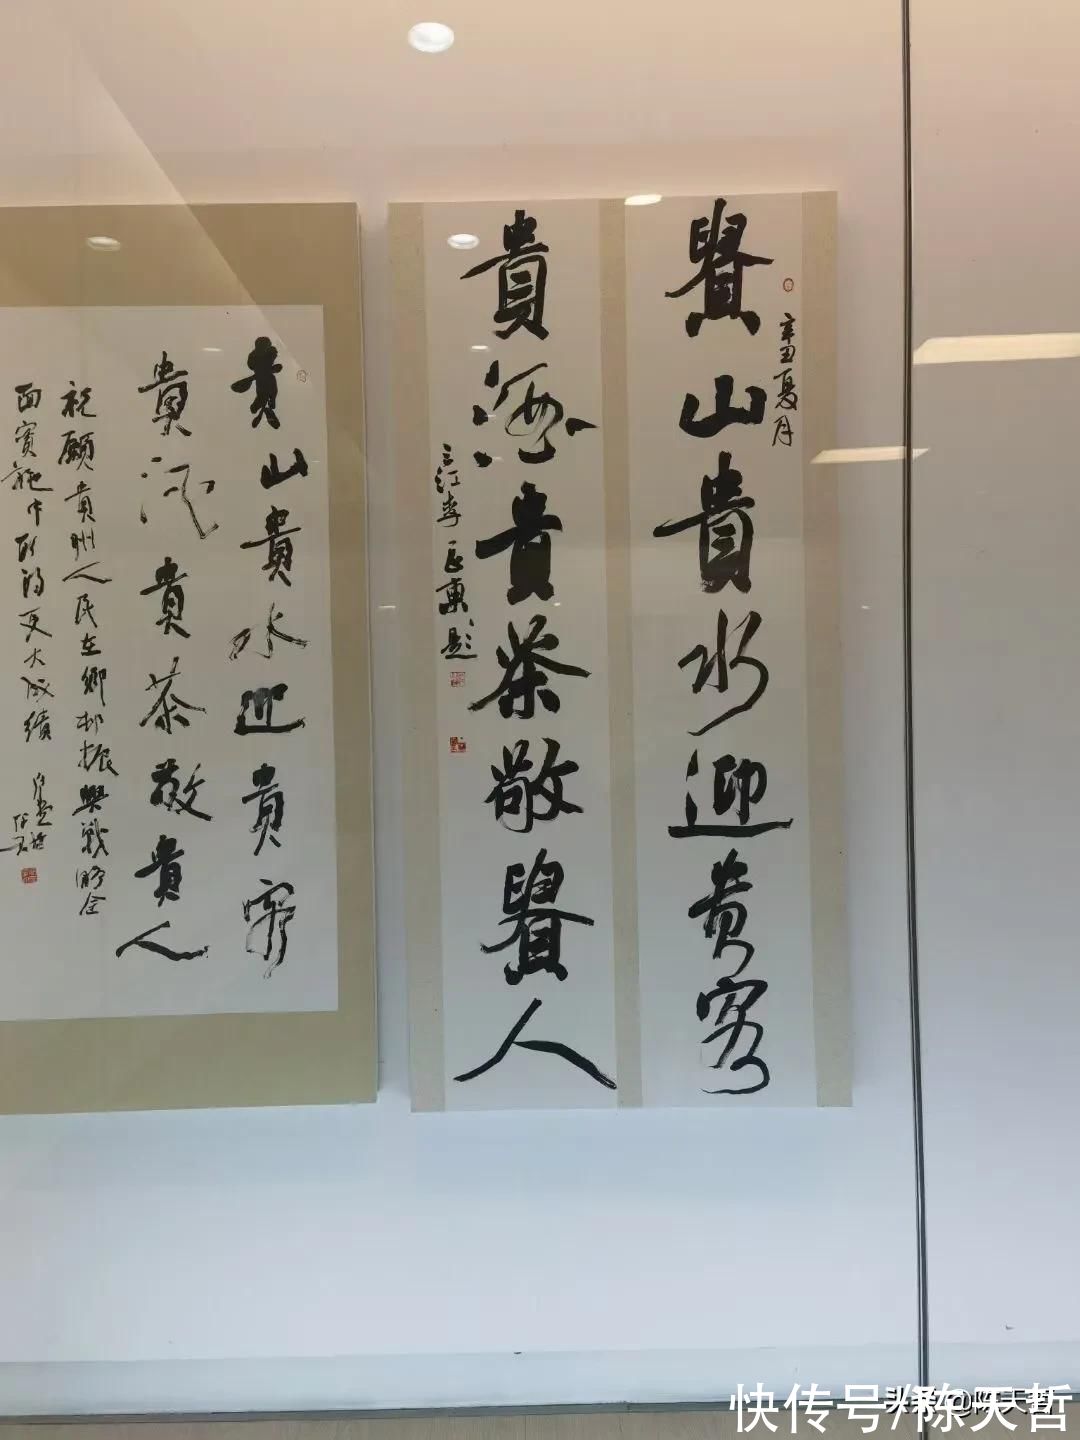 辛丑夏月
貴山貴水迎貴客
貴酒貴茶敬貴人
三江李
貴山貴水迎貴客
貴酒貴茶敬貴人
祝願貴州人民在鄉村振興戰略全
面實施中取得更大成績
快传号/陈天哲
头条 @陈天哲